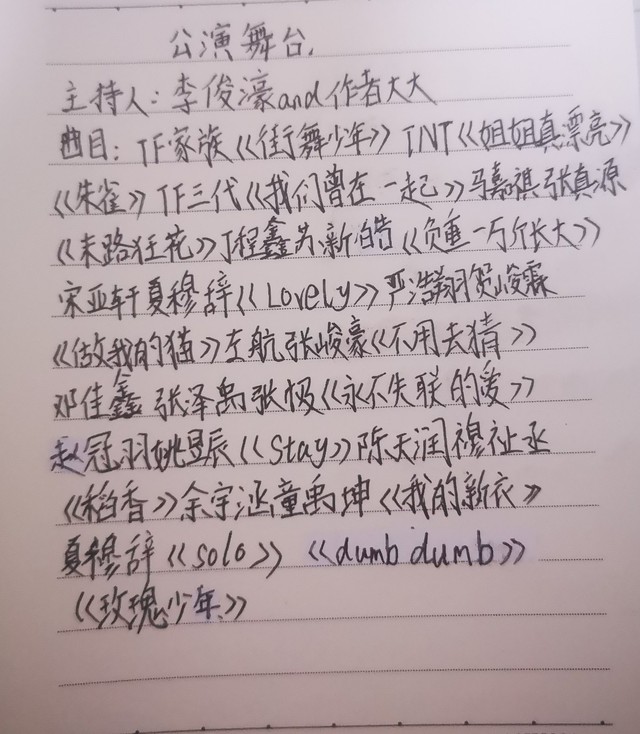 公演舞台.
主持人：李俊濠and作者大大
曲目：TF家族《街舞少年》TNT《姐姐真漂亮》
《朱雀》TF三代《我们曾在一起》马嘉祺张真源
《末路狂花》丁程鑫苏新皓《负重一万斤长大》
宋亚轩夏穆辞《Lovely》严浩翔贺峻霖
《做我的猫》左航张峻豪《不用去猜》
邓佳鑫张泽禹张极《永不失联的爱》
赵冠羽姚昱辰《Stay》陈天润穆祉丞
《稻香》余宇涵童禹坤《我的新衣》
夏穆辞《solo》《dumb dumb》
《玫瑰少年》